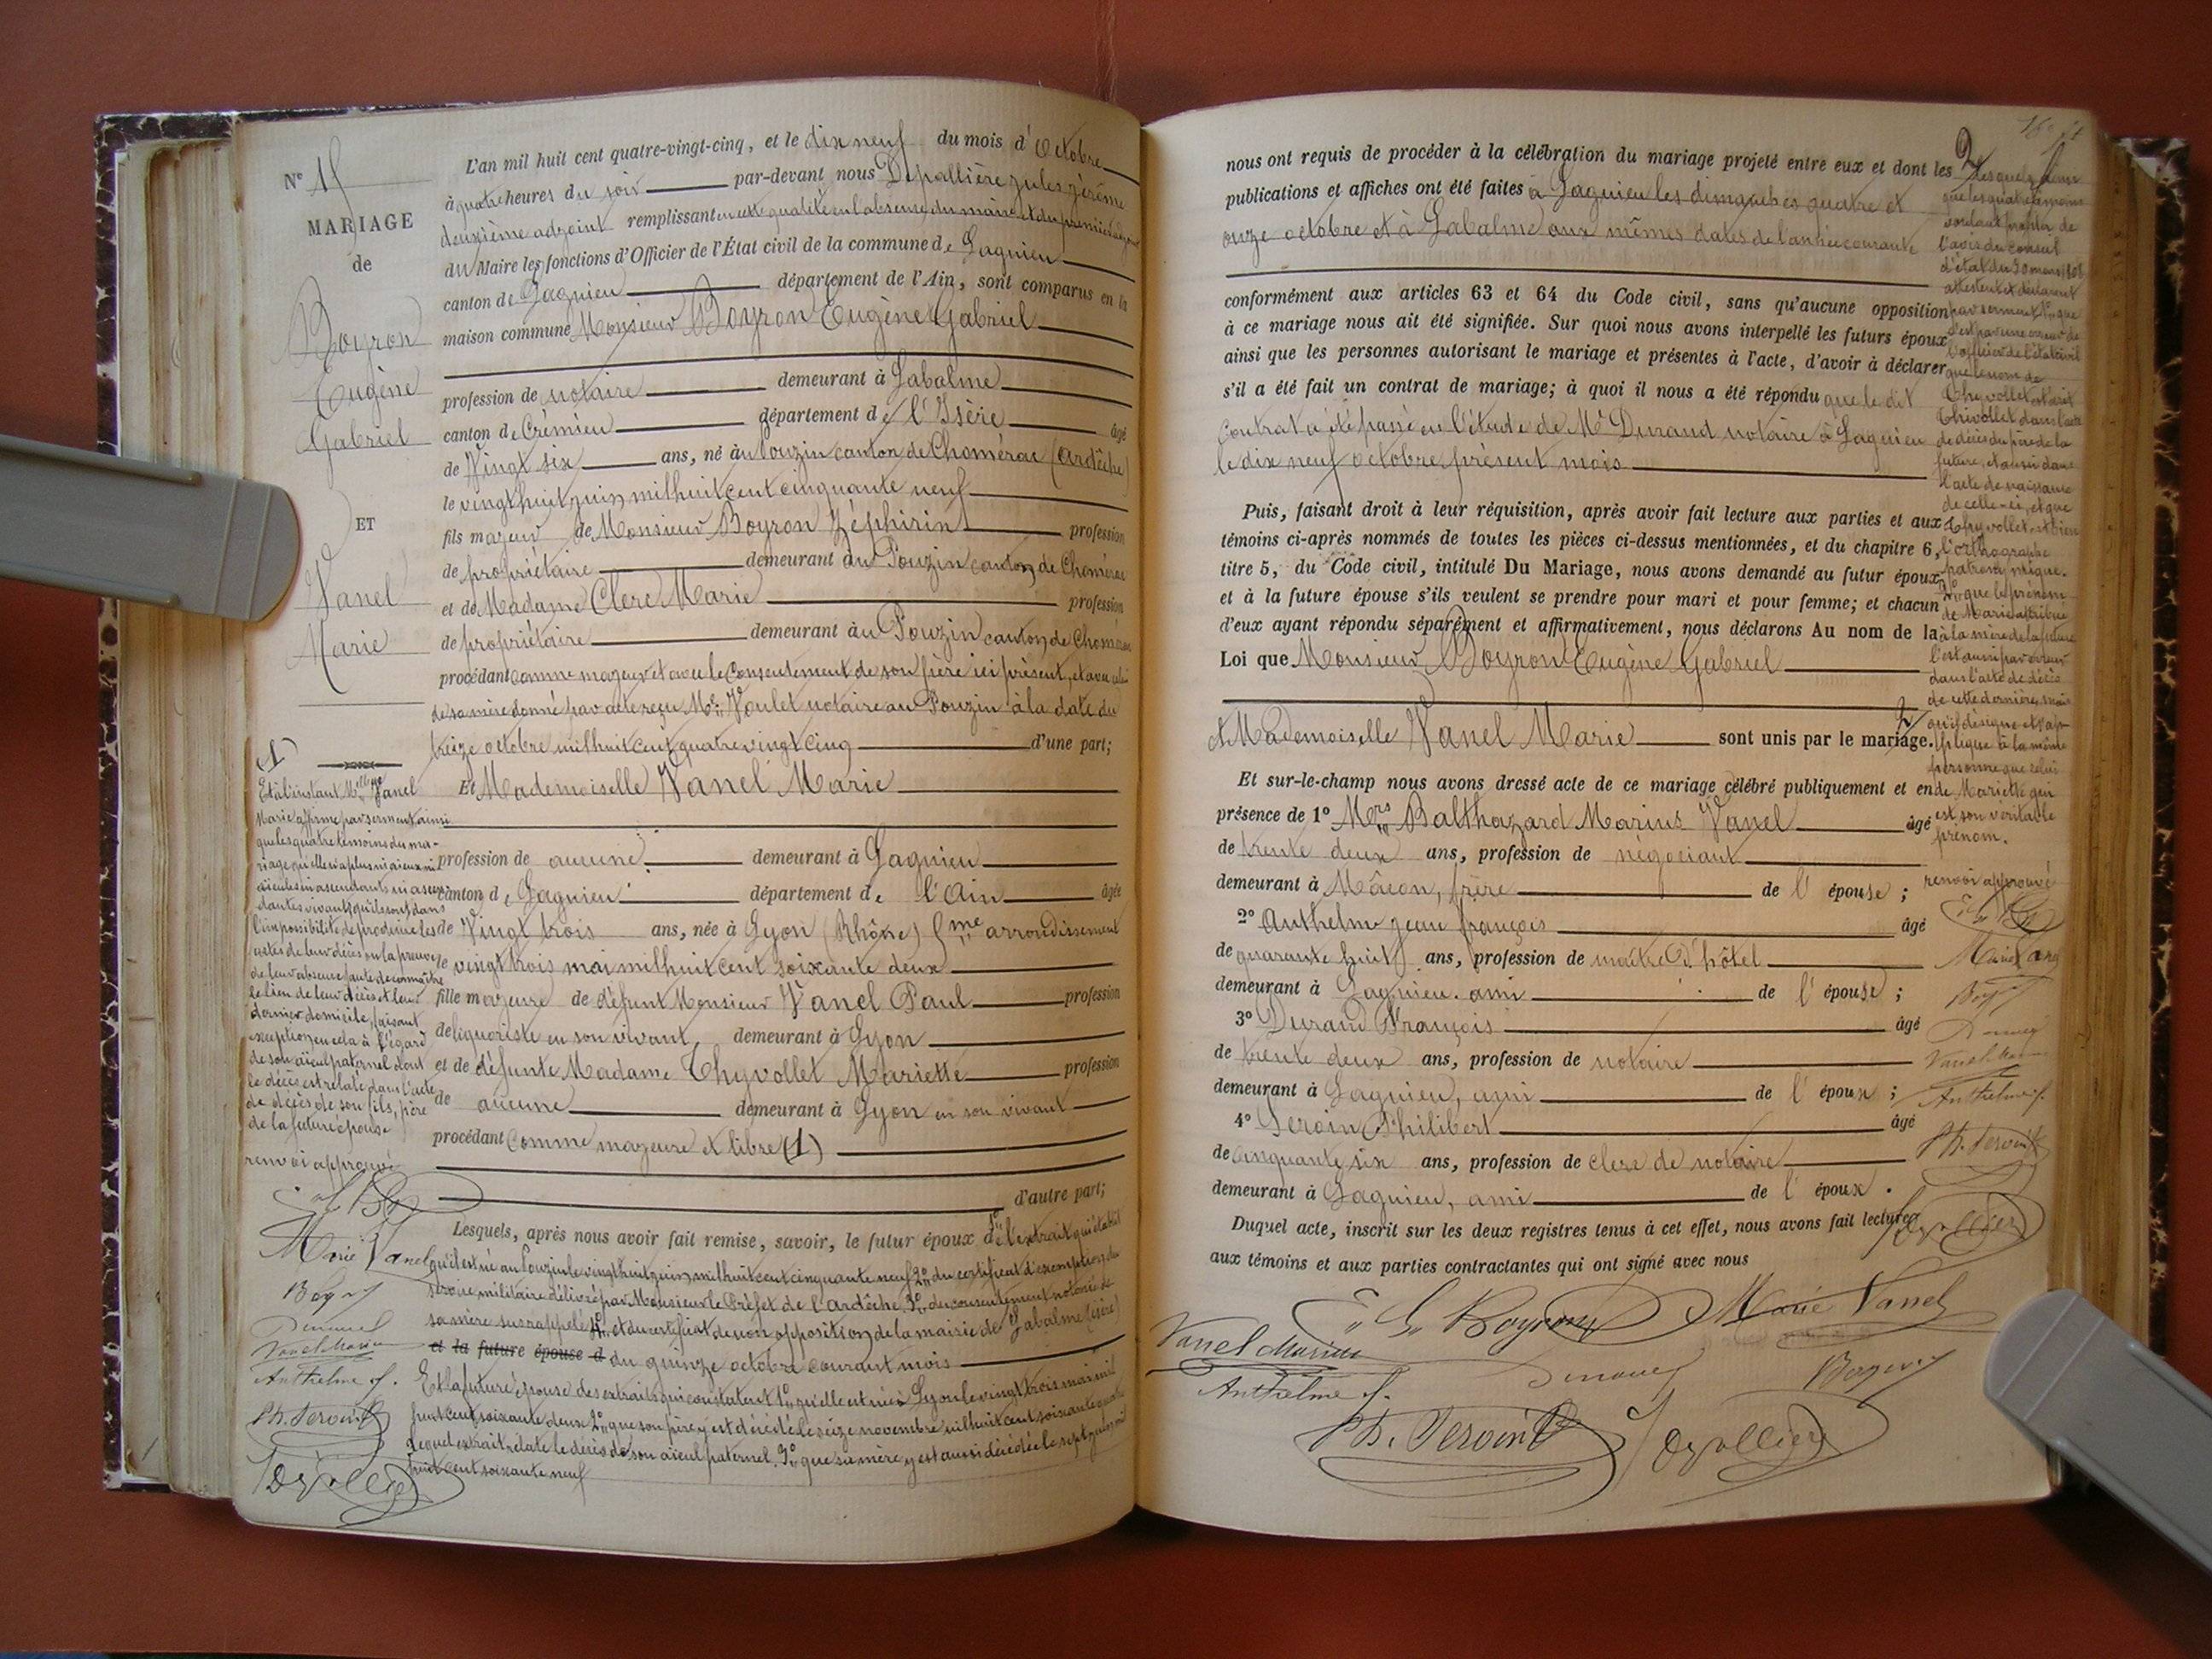 N° 15
MARIAGE
de
Boyron
Eugène
Gabriel
ET
Vanel
Marie
L'an mil huit cent quatre-vingt-cinq, et le dix neuf du mois d'Octobre
à quatre heures du soir par-devant nous Depallière Jules Jérôme
deuxième adjoint remplissant en cette qualité en l'absence du maire et du premier adjoint
du Maire les fonctions d'Officier de l'État civil de la commune de Lagnieu
canton de Lagnieu département de l'Ain, sont comparus en la
maison commune Monsieur Boyron Eugène Gabriel
profession de notaire demeurant à Labalme
canton de Crémieu département de l'Isère âgé
de Vingt six ans, né au Pouzin canton de Chomérac (Ardèche)
le vingt huit juin mil huit cent cinquante neuf
fils majeur de Monsieur Boyron Zéphirin profession
de propriétaire demeurant au Pouzin canton de Chomérac
et de Madame Clerc Marie profession
de propriétaire demeurant au Pouzin canton de Chomérac
procédant comme majeur et avec le consentement de son père ici présent, et avec celui
de sa mère donné par acte reçu Me Voulet notaire au Pouzin à la date du
treize octobre mil huit cent quatre vingt cinq d'une part;
Et Mademoiselle Vanel Marie
profession de aucune demeurant à Lagnieu
canton de Lagnieu département de l'Ain âgée
de Vingt trois ans, née à Lyon (Rhône) me arrondissement
le vingt trois mai mil huit cent soixante deux
fille majeure de défunt Monsieur Vanel Paul profession
de liquoriste en son vivant, demeurant à Lyon
et de défunte Madame Thyvollet Mariette profession
de aucune demeurant à Lyon en son vivant
procédant comme majeure et libre (1)
d'autre part;
Lesquels, après nous avoir fait remise, savoir, le futur époux de 1° l'extrait qui établit
qu'il est né au Pouzin le vingt huit juin mil huit cent cinquante neuf 2° du certificat d'exemption du
service militaire délivré par Monsieur le Préfet de l'Ardèche 3° du consentement notarié de
sa mère susrappelé 4° et du certificat de non opposition de la mairie de Labalme (isère)
et la future épouse d du quinze octobre courant mois
Et la future épouse des extraits qui constatent 1° qu'elle est née à Lyon le vingt trois mai mil
huit cent soixante deux 2° que son père y est décédé le seize novembre mil huit cent soixante quatre
lequel extrait relate le décès de son aïeul paternel. 3° que sa mère y est aussi décédée le sept juin mil
huit cent soixante neuf
(1)
Et à l'instant Melle Vanel
Marie affirme par serment ainsi
que les quatre témoins du ma-
riage qu'elle n'a plus ni aïeux ni
aïeules ni ascendants ni ascen-
dantes vivants, qu'ils sont dans
l'impossibilité de produire les
actes de leur décès ou la preuve
de leur absence faute de connaître
le lieu de leur décès et leur
dernier domicile, faisant
exception en cela à l'égard
de son aïeul paternel dont
le décès est relaté dans l'acte
de décès de son fils, père
de la future épouse
renvoi approuvé
Marie Vanel
Vanel Marius
Anthelme f.
Ph. Servin
Depallière
nous ont requis de procéder à la célébration du mariage projeté entre eux et dont les
publications et affiches ont été faites à Lagnieu les dimanches quatre et
onze octobre et à Labalme aux mêmes dates de l'année courante
conformément aux articles 63 et 64 du Code civil, sans qu'aucune opposition
à ce mariage nous ait été signifiée. Sur quoi nous avons interpellé les futurs époux
ainsi que les personnes autorisant le mariage et présentes à l'acte, d'avoir à déclarer
s'il a été fait un contrat de mariage; à quoi il nous a été répondu que le dit
contrat a été passé en l'étude de Me Durand notaire à Lagnieu
le dix neuf octobre présent mois
Puis, faisant droit à leur réquisition, après avoir fait lecture aux parties et aux
témoins ci-après nommés de toutes les pièces ci-dessus mentionnées, et du chapitre 6,
titre 5, du Code civil, intitulé Du Mariage, nous avons demandé au futur époux
et à la future épouse s'ils veulent se prendre pour mari et pour femme; et chacun
d'eux ayant répondu séparément et affirmativement, nous déclarons Au nom de la
Loi que Monsieur Boyron Eugène Gabriel
et Mademoiselle Vanel Marie sont unis par le mariage. 2
Et sur-le-champ nous avons dressé acte de ce mariage célébré publiquement et en
présence de 1° Mrs Balthazard Marius Vanel âgé
de trente deux ans, profession de négociant
demeurant à Mâcon, frère de l'épouse;
2° Anthelme Jean François âgé
de quarante huit ans, profession de maître d'hôtel
demeurant à Lagnieu. ami de l'épouse;
3° Durand François âgé
de trente deux ans, profession de notaire
demeurant à Lagnieu, ami de l'époux;
4° Servin Philibert âgé
de cinquante six ans, profession de clerc de notaire
demeurant à Lagnieu, ami de l'époux.
Duquel acte, inscrit sur les deux registres tenus à cet effet, nous avons fait lecture
aux témoins et aux parties contractantes qui ont signé avec nous
E. G. Boyron Marie Vanel
Vanel Marius
Anthelme f.
Ph. Servin Depallière
2
que les quatre témoins
voulant profiter de
l'avis du conseil
d'état du 30 mars 1808
attestent et déclarent
par serment 1° que
c'est par une erreur de
l'officier de l'état civil
que le nom de
Thyvollet est écrit
Thivollet dans l'acte
de décès du père de la
future, et aussi dans
l'acte de naissance
de celle-ci, et que
Thyvollet est bien
l'orthographe
patronymique.
2° que le prénom
de Marie attribué
à la mère de la future
l'est aussi par erreur
dans l'acte de décès
de cette dernière, mais
qu'il désigne et s'ap-
plique à la même
personne que celui
de Mariette qui
est son véritable
prénom.
renvoi approuvé
Marie Vanel
Vanel Marius
Anthelme f.
Ph. Servin
Depallière